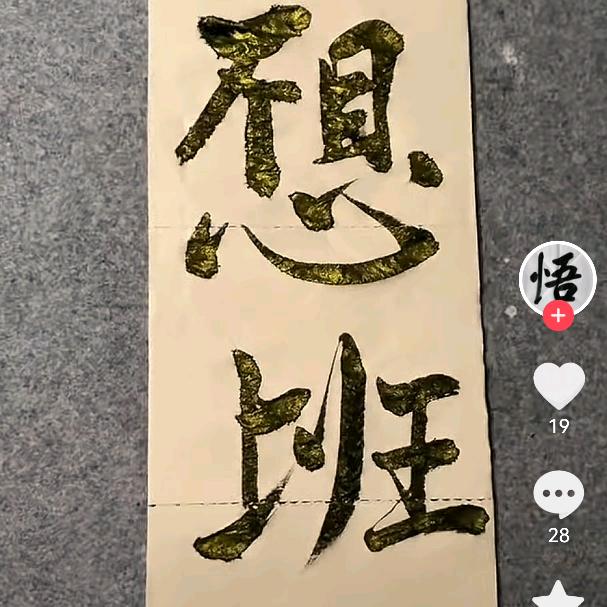 想
班
悟
19
28